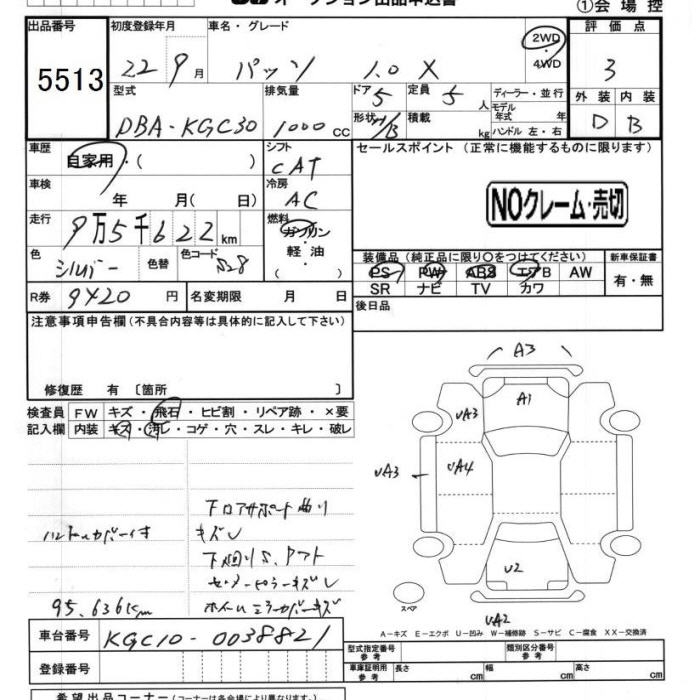 オークション出品申込書
①会場控
出品番号 初度登録年月 車名・グレード 評価点
5513 22 9月 パッソ 1.0 X 2WD・4WD 3
型式 排気量 ドア 定員 ディーラー・並行 外装 内装
DBA-KGC30 1000cc 5 5人 モデル年式 年 D B
形状 H/B 積載 kg ハンドル 左・右
車歴 自家用・( ) シフト CAT セールスポイント (正常に機能するものに限ります)
車検 年 月( 日) 冷房 AC
NOクレーム・売切
走行 9万5千622km 燃料 ガソリン 軽油 ( )
色 シルバー 色替 色コード S28
装備品(純正品に限り○をつけてください) 新車保証書
PS PW ABS エアB AW 有・無
SR ナビ TV カワ
R券 9420円 名変期限 月 日 後日品
注意事項申告欄(不具合内容等は具体的に記入して下さい)
修復歴 有 〔箇所 〕
検査員記入欄 FW キズ・飛石・ヒビ割・リペア跡・×要
内装 キズ・汚レ・コゲ・穴・スレ・キレ・破レ
A3
A1
UA3
UA3
UA4
U2
UA2
スペア
下ロアサポート曲り
ハンドルカバー付 キズU
下廻りS、アフト
センターピラーキズU
95,636km ホイールミラーカバーキズ
A-キズ E-エクボ U-凹み W-補修跡 S-サビ C-腐食 XX-交換済
車台番号 KGC10-0038821
型式指定番号 参考 類別区分番号 参考
登録番号
車庫証明用 参考 長さ cm 幅 cm 高さ cm
希望出品コーナー(コーナーは各会場により異なります。)